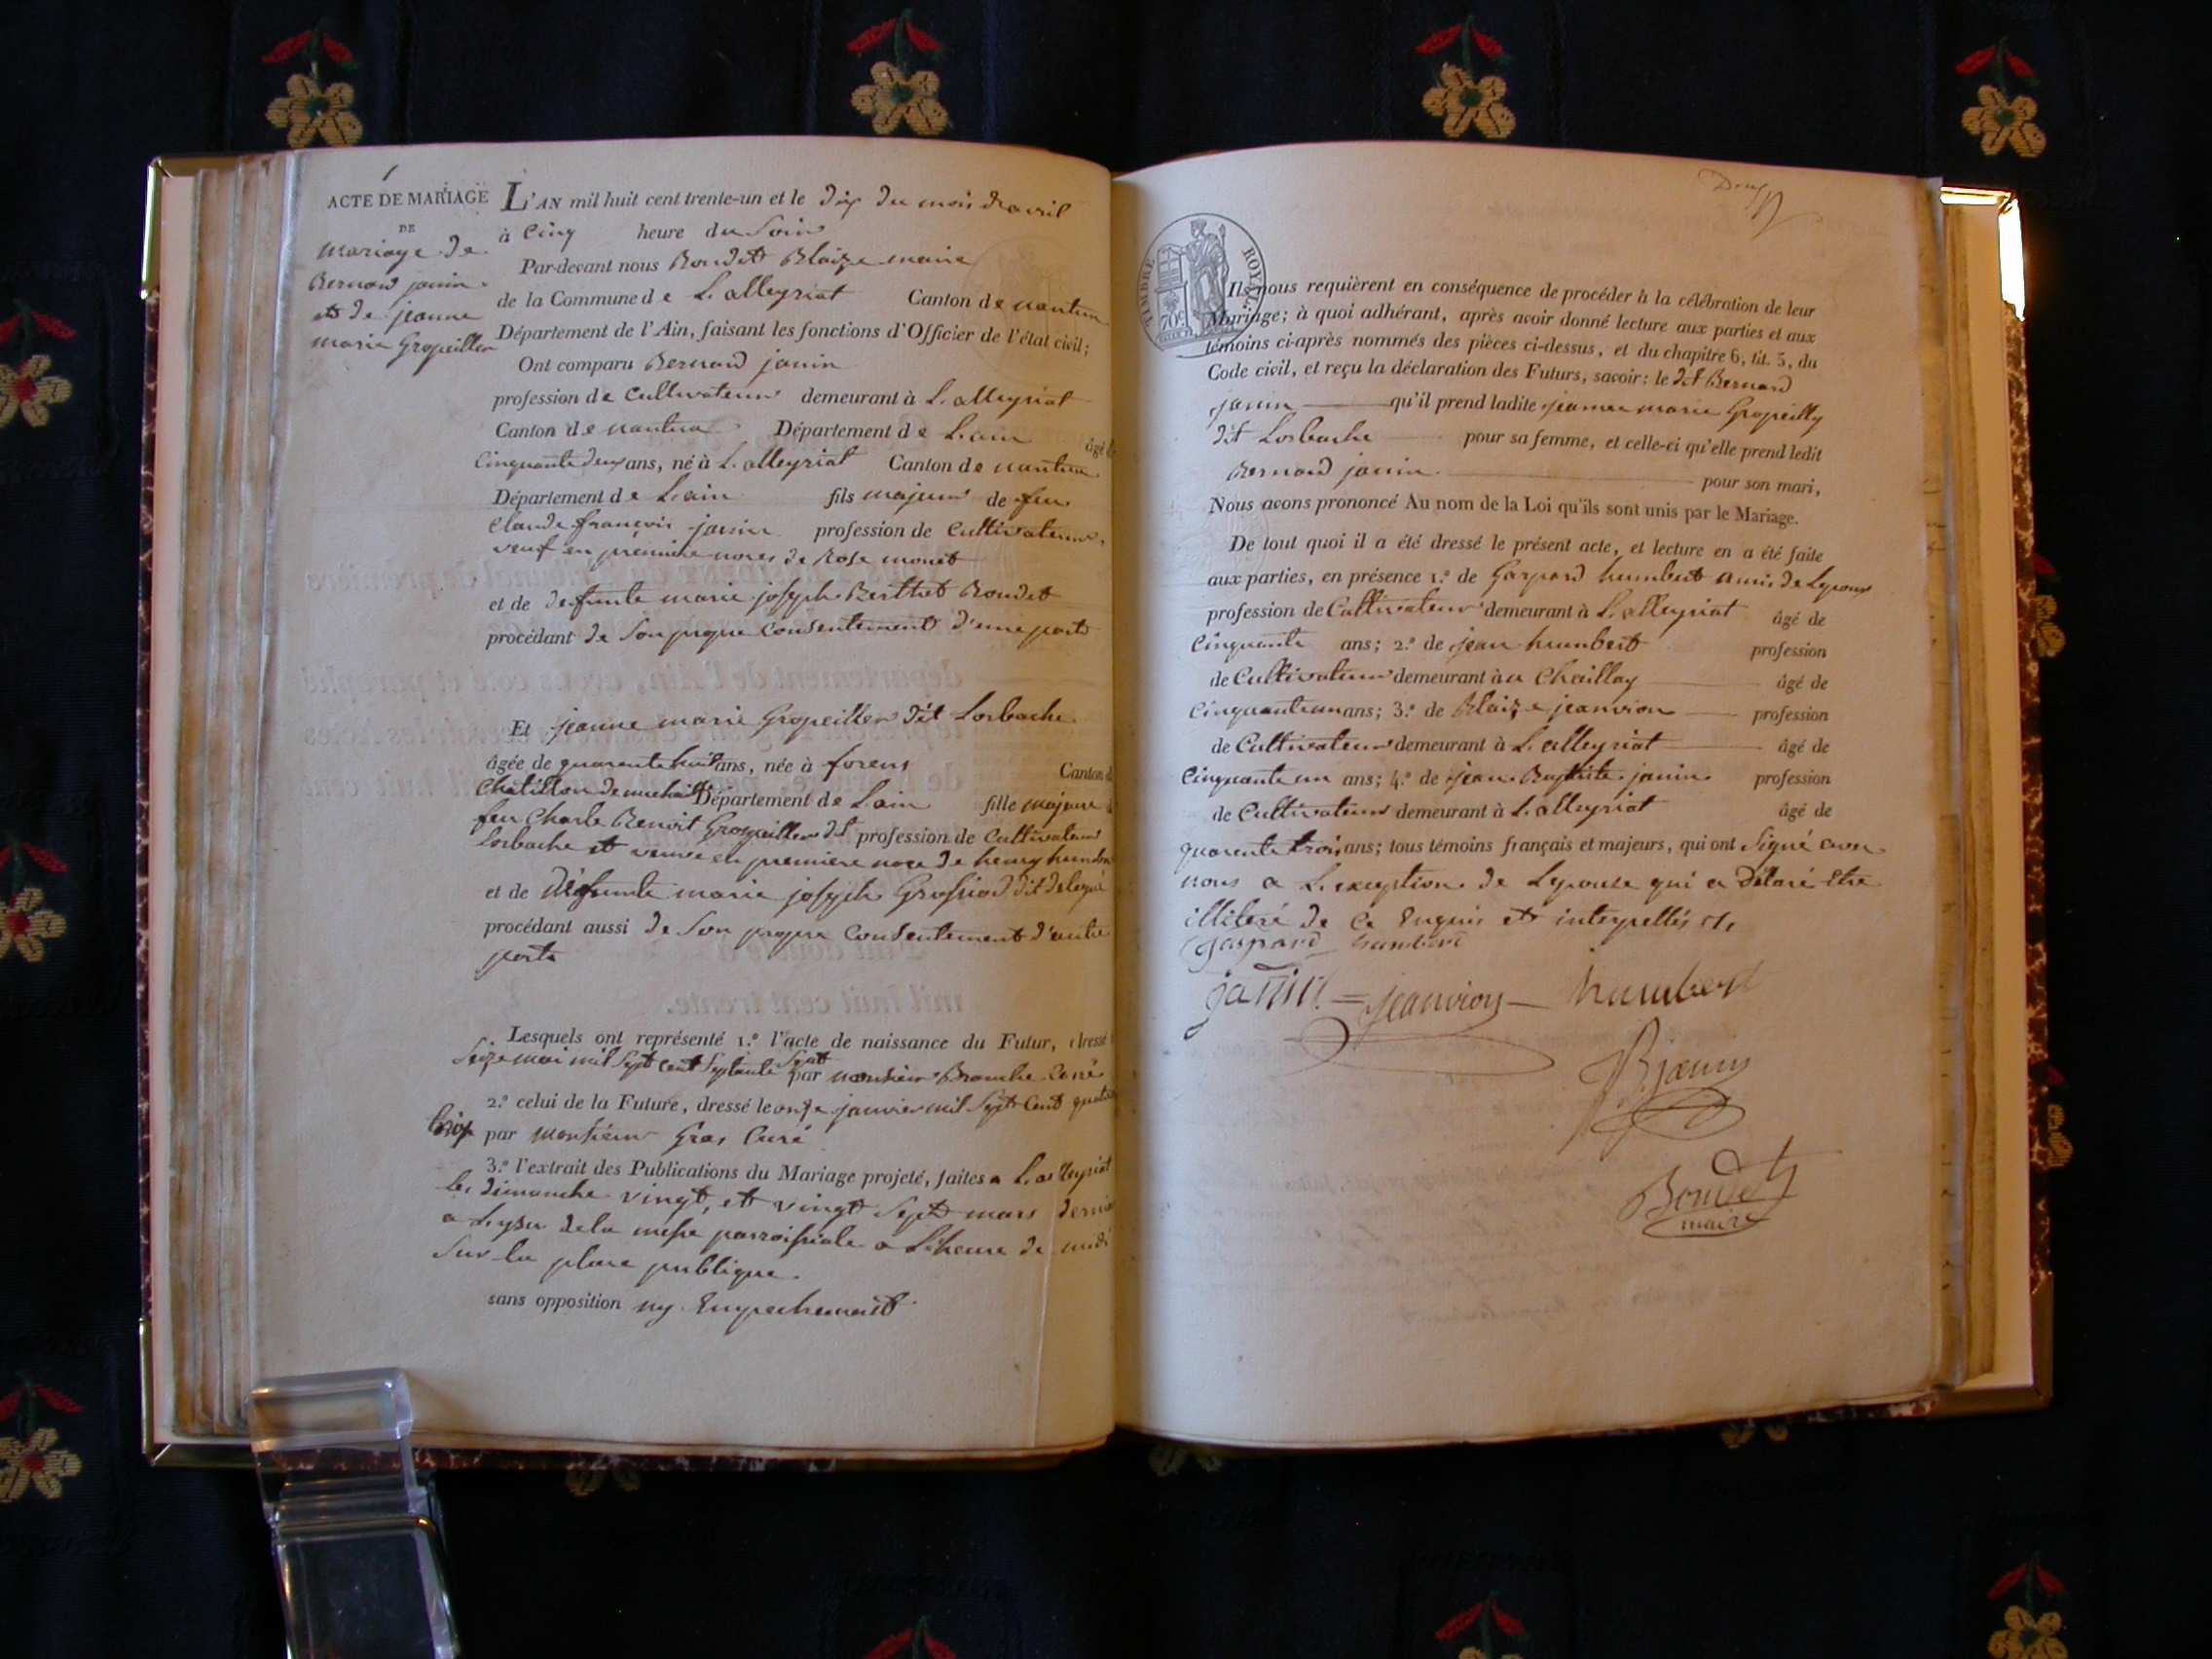 1
ACTE DE MARIAGE
DE
mariage de
Bernard janin
et de jeanne
marie Gropeiller
L'AN mil huit cent trente-un et le dix du mois davril
à Cinq heure du Soir
Par-devant nous Boudet Blaize maire
de la Commune de L. alleyriat Canton de nantua
Département de l'Ain, faisant les fonctions d'Officier de l'état civil;
Ont comparu Bernard janin
profession de Cultivateur demeurant à L. alleyriat
Canton de nantua Département de L. ain âgé de
Cinquante deux ans, né à L. alleyriat Canton de nantua
Département de L. ain fils majeur de feu
Claude françois janin profession de Cultivateur,
veuf en première noces de Rose monet
et de defunte marie joseph Berthet Bondet
procédant de Son propre Consentement d'une part
Et jeanne marie Gropeiller dit Losbache
âgée de quarente huit ans, née à forens Canton d
Chatillon de michaille Département de Lain fille majeure
feu Charle Benoit Gropeiller dit profession de Cultivateur
Losbache et veuve en première noce de henry humber
et de défunte marie joseph Grossiod dit
procédant aussi de Son propre Consentement d'autre
part
Lesquels ont représenté 1.º l'acte de naissance du Futur, dressé
Seize mai mil Sept cent Septante Sept par monsieur Curé
2.º celui de la Future, dressé le onze janvier mil Sept Cent quatre
par monsieur Gras Curé
3.º l'extrait des Publications du Mariage projeté, faites a L. alleyriat
les dimanche vingt, et vingt Sept mars dernier
a Lissu de la messe parroissiale a L'heure de midi
Sur la place publique.
sans opposition ny Empechement
TIMBRE ROYAL
70c
Ils nous requièrent en conséquence de procéder à la célébration de leur
Mariage; à quoi adhérant, après avoir donné lecture aux parties et aux
témoins ci-après nommés des pièces ci-dessus, et du chapitre 6, tit. 5, du
Code civil, et reçu la déclaration des Futurs, savoir: le dit Bernard
janin qu'il prend ladite jeanne marie Gropeilly
dit Losbache pour sa femme, et celle-ci qu'elle prend ledit
Bernard janin pour son mari,
Nous avons prononcé Au nom de la Loi qu'ils sont unis par le Mariage.
De tout quoi il a été dressé le présent acte, et lecture en a été faite
aux parties, en présence 1.º de Gaspard humbert amis de Lepoux
profession de Cultivateur demeurant à L. alleyriat âgé de
Cinquante ans; 2.º de jean humbert profession
de Cultivateur demeurant à u Chaillay âgé de
Cinquante un ans; 3.º de Blaize jeanvion profession
de Cultivateur demeurant à L. alleyriat âgé de
Cinquante un ans; 4.º de jean Baptiste janin profession
de Cultivateur demeurant à L. alleyriat âgé de
quarente trois ans; tous témoins français et majeurs, qui ont Signé avec
nous a L. exception de Lepouse qui a Déclaré Etre
illiteré de Ce Enquis et interpellés
Gaspard humbert
janin = jeanvion humbert
JB janin
Boudet
maire